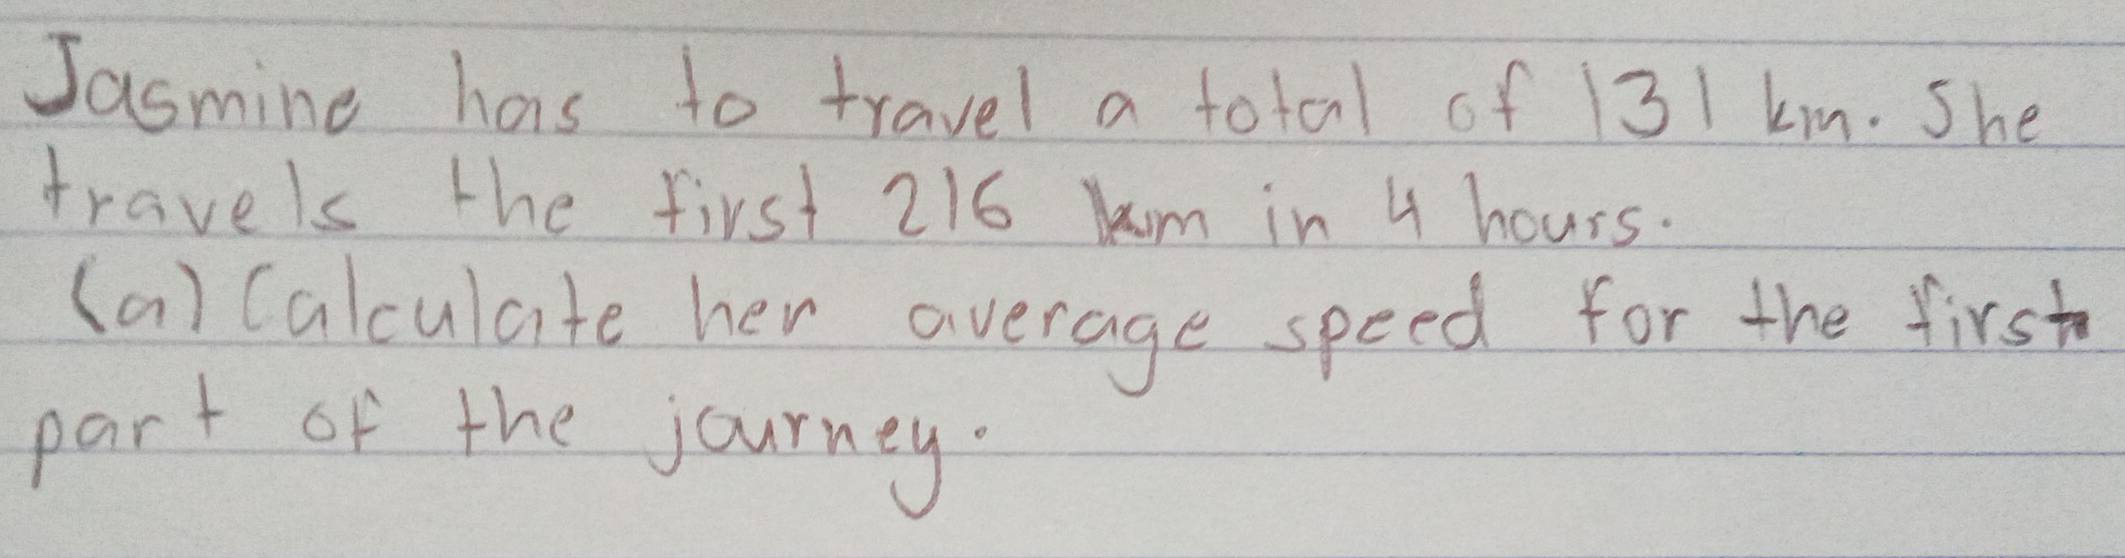 Jasmine has to travel a total of 131 km. She
travels the first 216 km in 4 hours.
(a) Calculate her average speed for the first
part of the journey.